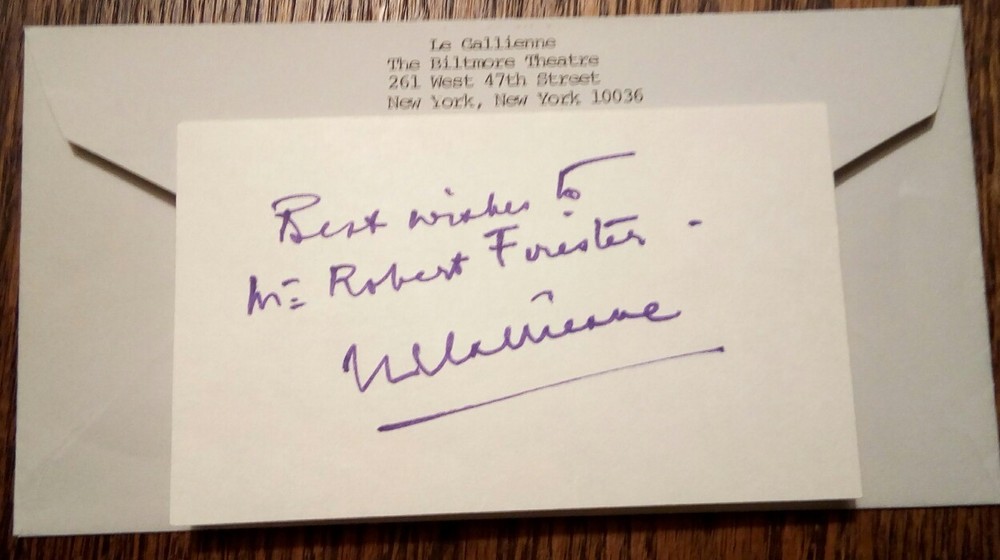 Le Gallienne
The Biltmore Theatre
261 West 47th Street
New York, New York 10036
Best wishes to
Mr Robert Forester -
Le Gallienne